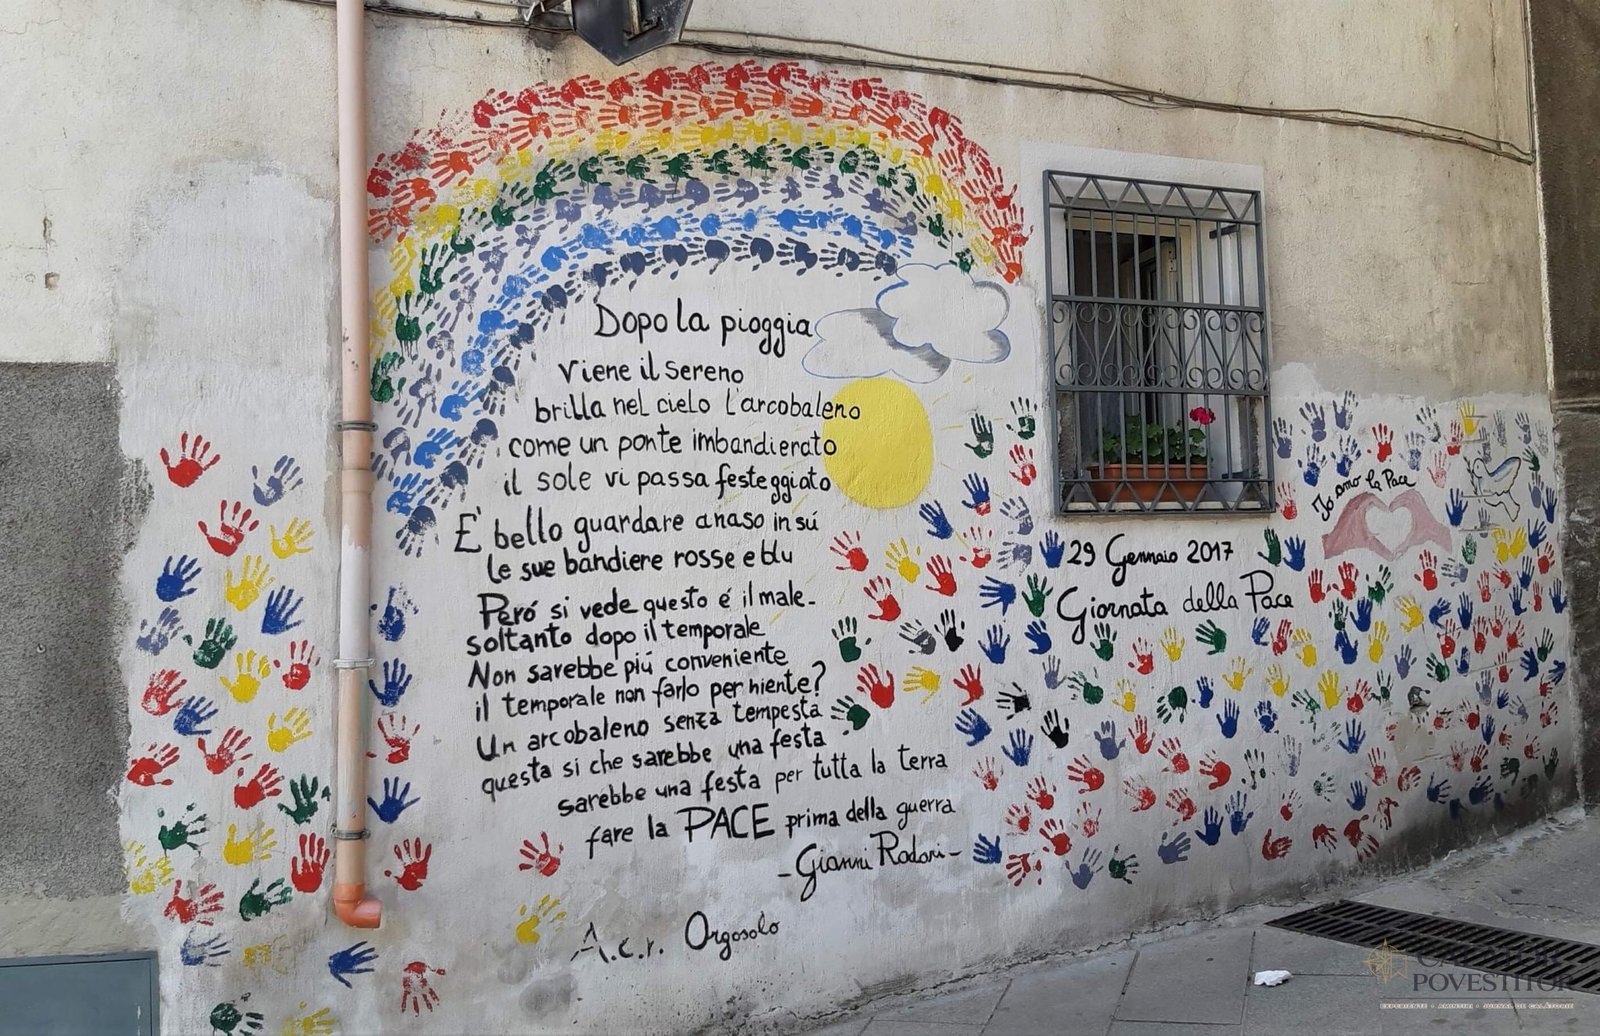 Dopo la pioggia
viene il sereno
brilla nel cielo l'arcobaleno
come un ponte imbandierato
il sole vi passa festeggiato
E' bello guardare a naso in sú
le sue bandiere rosse e blu
Peró si vede questo é il male-
soltanto dopo il temporale
Non sarebbe piú conveniente
il temporale non farlo per niente?
Un arcobaleno senza tempesta
questa si che sarebbe una festa
sarebbe una festa per tutta la terra
fare la PACE prima della guerra
-Gianni Rodari-
A.c.r. Orgosolo
29 Gennaio 2017
Giornata della Pace
Io amo la Pace
POVESTITOR
EXPERIENȚE • AMINTIRI • JURNAL DE CĂLĂTORIE